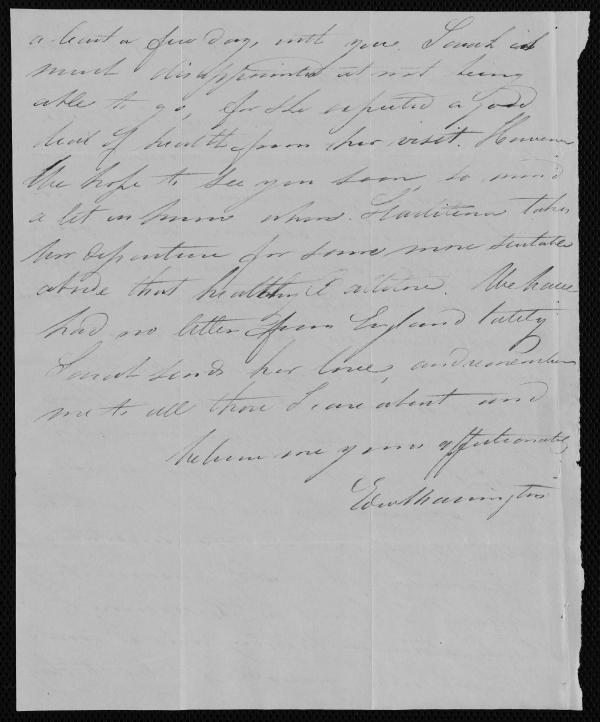 a least a few days with you. Sarah is
much disappointed at not being
able to go, for she expected a good
deal of health from her visit. However
We hope to see you soon, so mind
a let us know when. takes
her departure for some more suitable
abode that health &. We have
had no letter from England lately
Sarah sends her love, and remember
me to all those I care about and
believe me yours affectionately
Edw Harrington